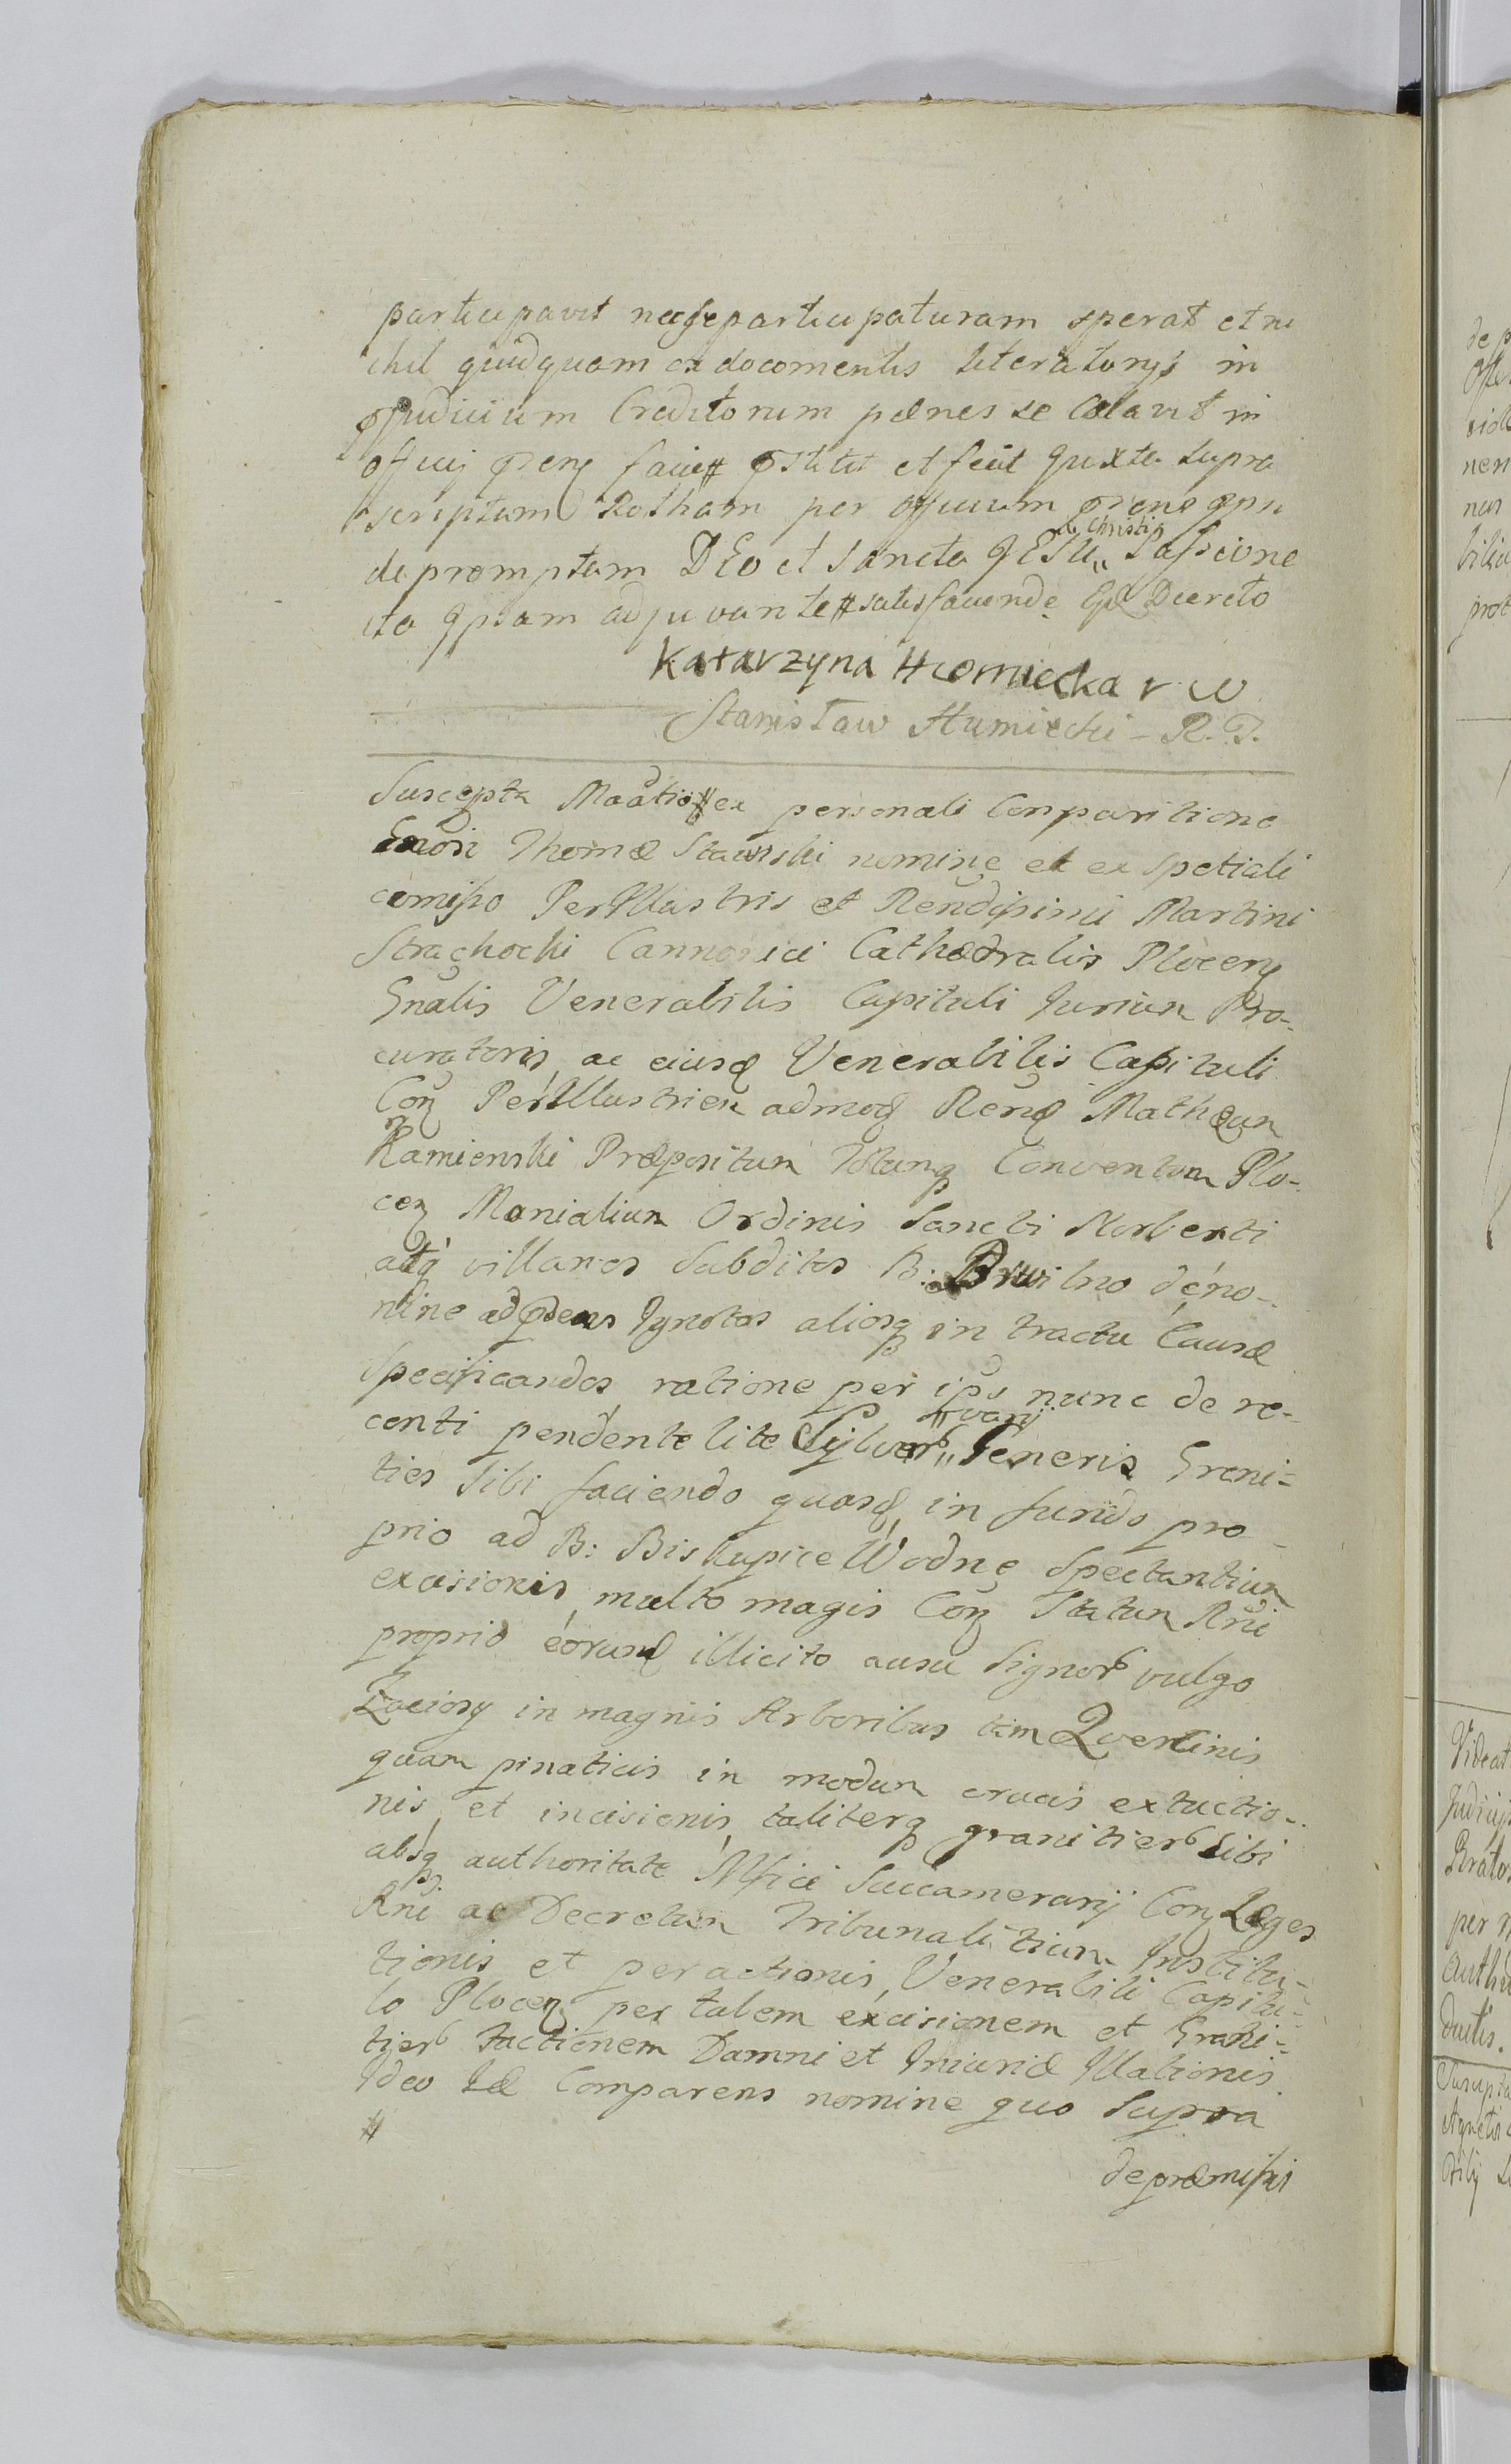 participavit necqe participaturam sperat et ni
chil quidquam ex documentis literatorys in
pjudicium Creditorum pænes se Celavit in
officij prens facie pstitit et fecit Juxta supra
scriptam Rotham per officium prens ipsi
depromptam DEo et Sancta JESu Christi Passione
ita Jpsam adjuvante satisfaciende Eid Decreto
Katarzyna Homiecka r w
Stanisław Humiecki - R. T.
Suscepta Maatio ex personali Comparitione
Gnosi Thomæ Stawski nomine et ex spetiali
comisso PerIllustris et Rendissimi Martini
Strachocki Cannonici Cathædralis Plocens
Gnalis Venerabilis Capituli Jurium Pro-
curatoris, ac eiusd Venerabilis Capituli
Con PerIllustrem admod Rend Matheum
Kamienski Præpositum Totumq Conventum Plo-
cen Monialium Ordinis Sancti Norberti
atq villanos Subditos B: Brwilno de no-
mine ad præns Jgnotos aliosq in tractu Causæ
specificandos, ratione per ips nunc de re-
centi pendente lite Sylvar varij Generis Grani-
ties Sibi faciendo quasd, in fundo pro-
prio ad B: Biskupice Wodne Spectantium
excisionis, multo magis Con Statum Rni
proprio eorund illicito ausu Signor vulgo
Zaciosy in magnis Arboribus tam Quercinis
quam pinaticis in modum crucis extuctio-
nis, et incisionis, taliterq granitier Sibi
absq authoritate Mfici Succamerarij Con Leges
Rni ac Decretum Tribunalitium Institu-
tionis et peractionis, Venerabili Capitu-
lo Plocen per talem excisionem et Grani-
tier factionem Damni et Iniuriæ Illationis.
Ideo Id Comparens nomine quo Supra
de præmissis